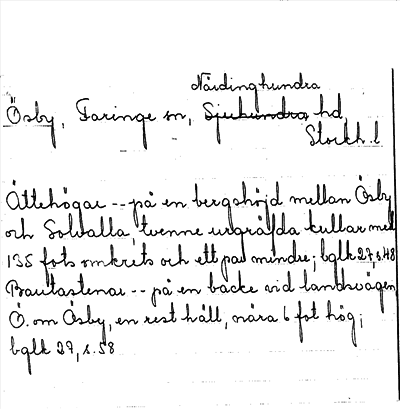 Närdinghundra
Ösby, Faringe sn, Sjuhundra hd,
Stockh. l
Ättehögar -- på en bergshöjd mellan Ösby
och Solvalla, tvenne urgräfda kullar med
135 fots omkrets och ett par mindre; bglk 27, s.48
Bautastenar -- på en backe vid landsvägen
Ö. om Ösby, en rest häll, nära 6 fot hög;
bglk 27, s. 58